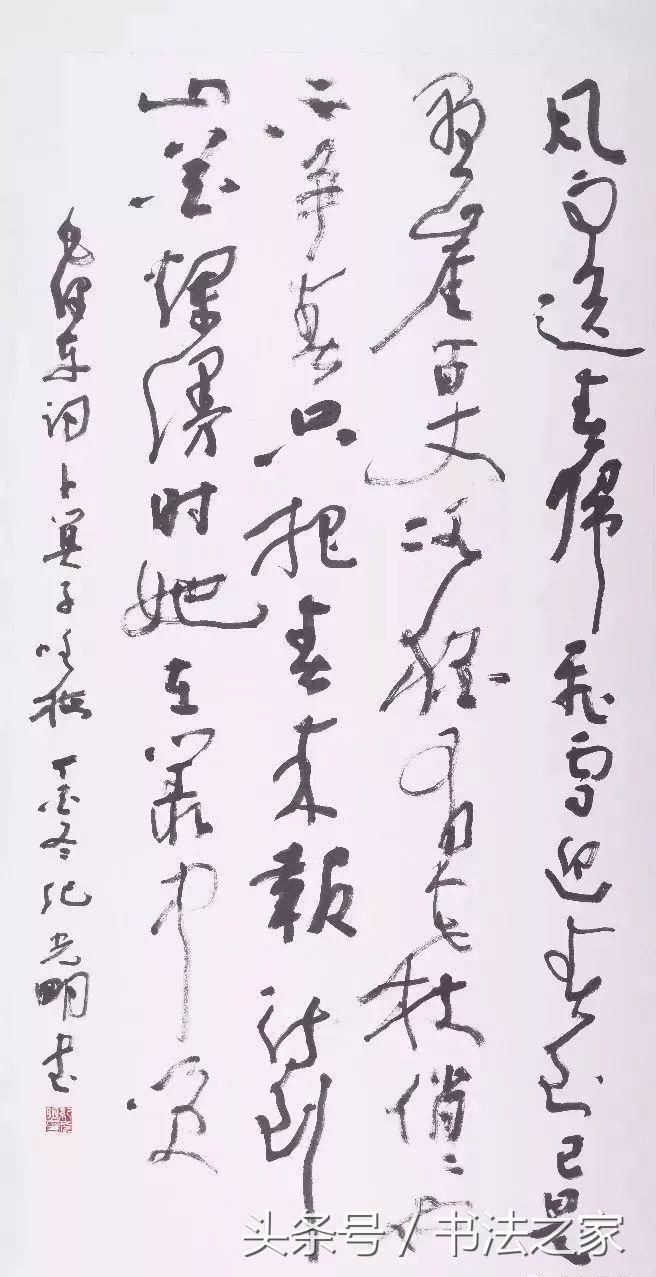 风雨送春歸飛雪迎春到已是
懸崖百丈冰猶有花枝俏俏也
不争春只把春来報待到
山花爛漫时她在叢中笑
毛泽东词卜算子咏梅 丁酉冬纪光明书
头条号 / 书法之家